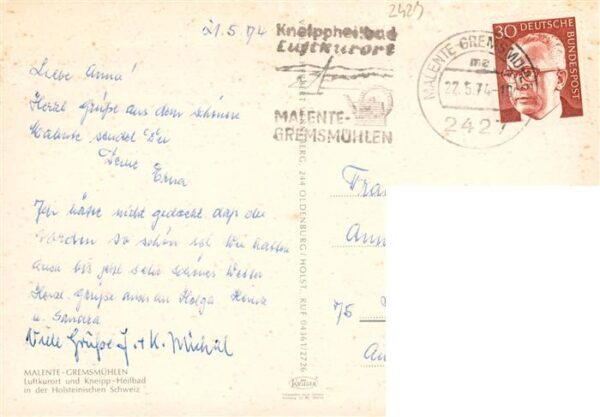 2427
21.5.74
Kneippheilbad
Luftkurort
MALENTE-
GREMSMÜHLEN
MALENTE-GREMSMÜHLEN
22.5.74
2427
30
DEUTSCHE
BUNDESPOST
Liebe Anna!
Herzl. Grüße aus dem schönen
Malente sendet Dir
Deine
Erna
Ich hätte nicht gedacht daß der
Norden so schön ist Wir hatten
auch bis jetzt sehr schönes Wetter
Herzl. Grüße auch an Helga Heinz
u. Sandra
Viele Grüße J. + K. Michal
244 OLDENBURG/HOLST. RUF 04361/2726
MALENTE-GREMSMÜHLEN
Luftkurort und Kneipp-Heilbad
in der Holsteinischen Schweiz
Krüger